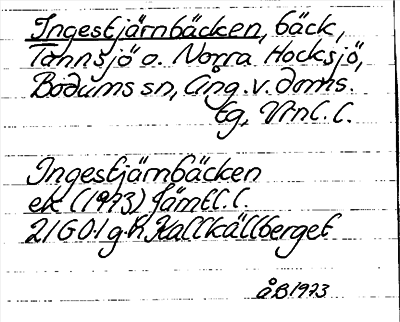 Ingestjärnbäcken, bäck,
Tannsjö o. Norra Hocksjö,
Bodums sn, Ång. v. doms.
tg, Vrnl. l.
Ingestjärnbäcken
ek (1973) Jämtl. l.
21G0-1 g-h Kallkällberget
ÅB 1973